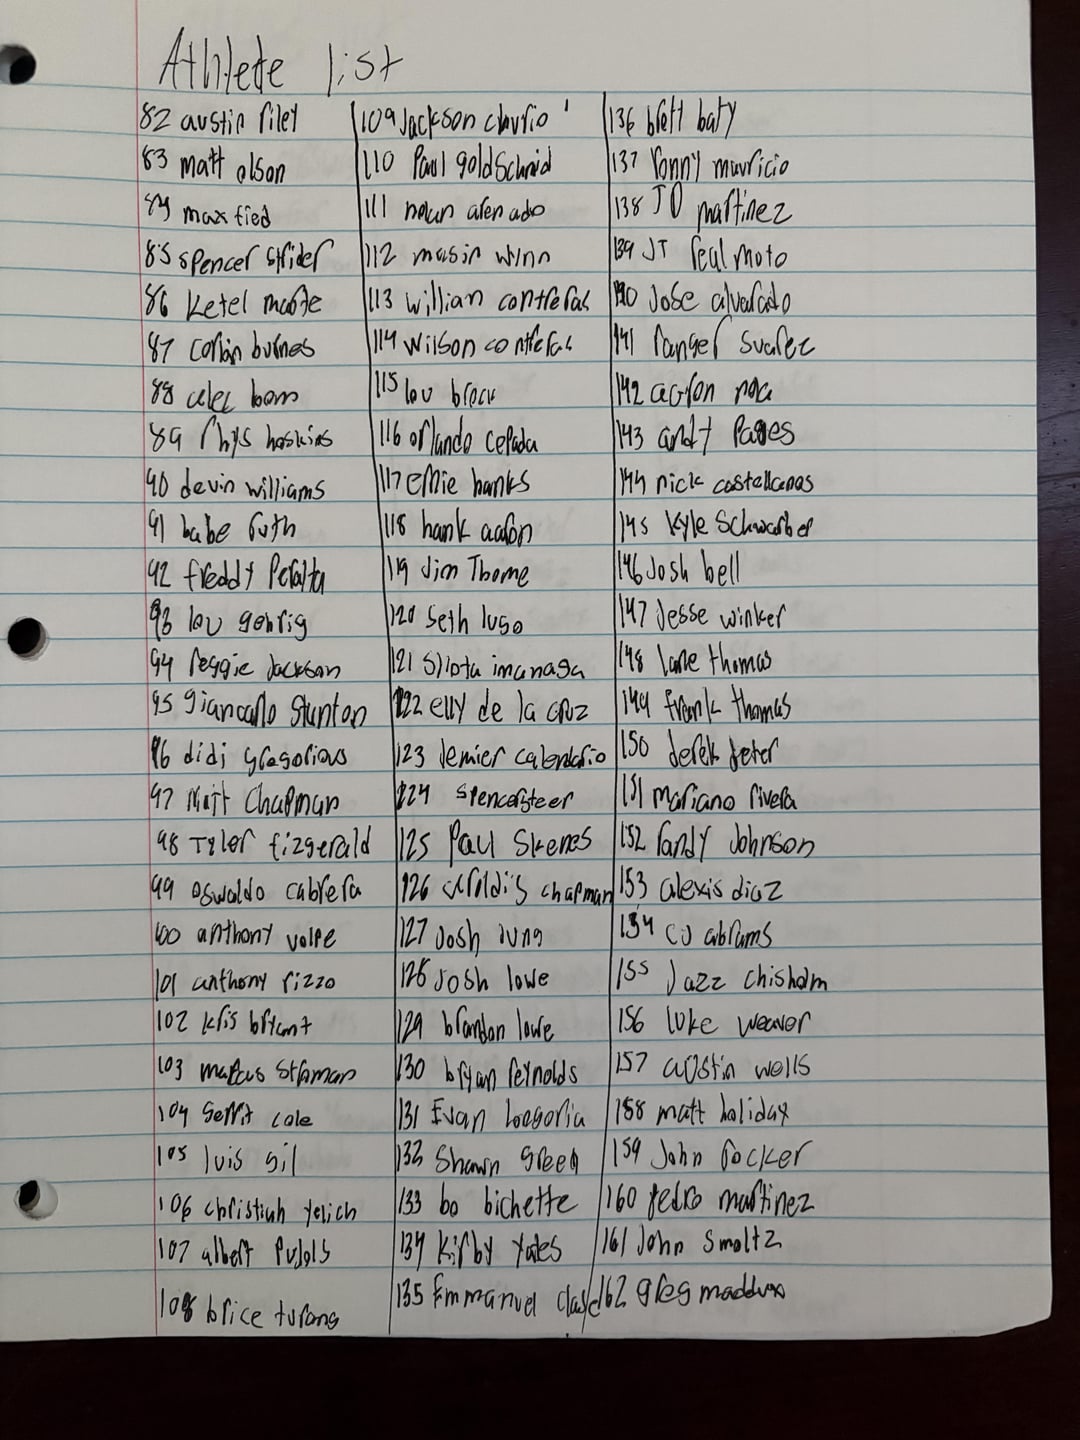 Athlete list
82 austin riley
83 matt olson
84 max fied
85 spencer strider
86 Ketel marte
87 corbin burnes
88 alec bom
89 rhys hoskins
90 devin williams
91 babe ruth
92 freddy Peralta
93 lou gehrig
94 reggie Jackson
95 giancarlo stanton
96 didi gregorious
97 Matt Chapman
98 Tyler fizgerald
99 oswaldo cabrera
100 anthony volpe
101 anthony rizzo
102 kris bryant
103 marcus stroman
104 gerrit cole
105 luis gil
106 christiah yelich
107 albert Pujols
108 brice turang
109 Jackson churio
110 Paul goldSchmid
111 nolan arenado
112 masin winn
113 willian contreras
114 wilson contreras
115 lou brock
116 orlando cepada
117 ernie banks
118 hank aaron
119 Jim Thome
120 Seth lugo
121 Shota imanaga
122 elly de la cruz
123 Jemier calendario
124 spencer steer
125 Paul Skenes
126 aroldis chapman
127 Josh Jung
128 Josh lowe
129 brandon lowe
130 bryan reynolds
131 Evan longoria
132 Shawn green
133 bo bichette
134 Kirby yates
135 Emmanuel clase
136 brett baty
137 ronny mauricio
138 JD martinez
139 JT realmoto
140 Jose alvarado
141 ranger suarez
142 aaron noa
143 andy Pages
144 nick castellanos
145 Kyle Schwarber
146 Josh bell
147 Jesse winker
148 lane thomas
149 frank thomas
150 derek jeter
151 mariano rivera
152 randy Johnson
153 alexis diaz
154 CJ abrams
155 Jazz chisholm
156 luke weaver
157 austin wells
158 matt holiday
159 John rocker
160 pedro martinez
161 John Smoltz
162 greg maddux